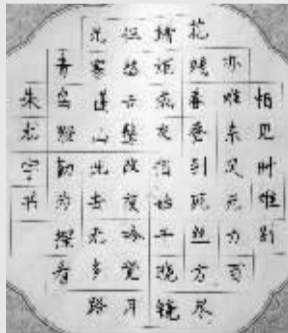 相见时难别
亦难东风无力百
花残春蚕到死丝方尽
蜡炬成灰泪始干晓镜
但愁云鬓改夜吟觉月
光寒蓬山此去无多路
青鸟殷勤为探看
朱书